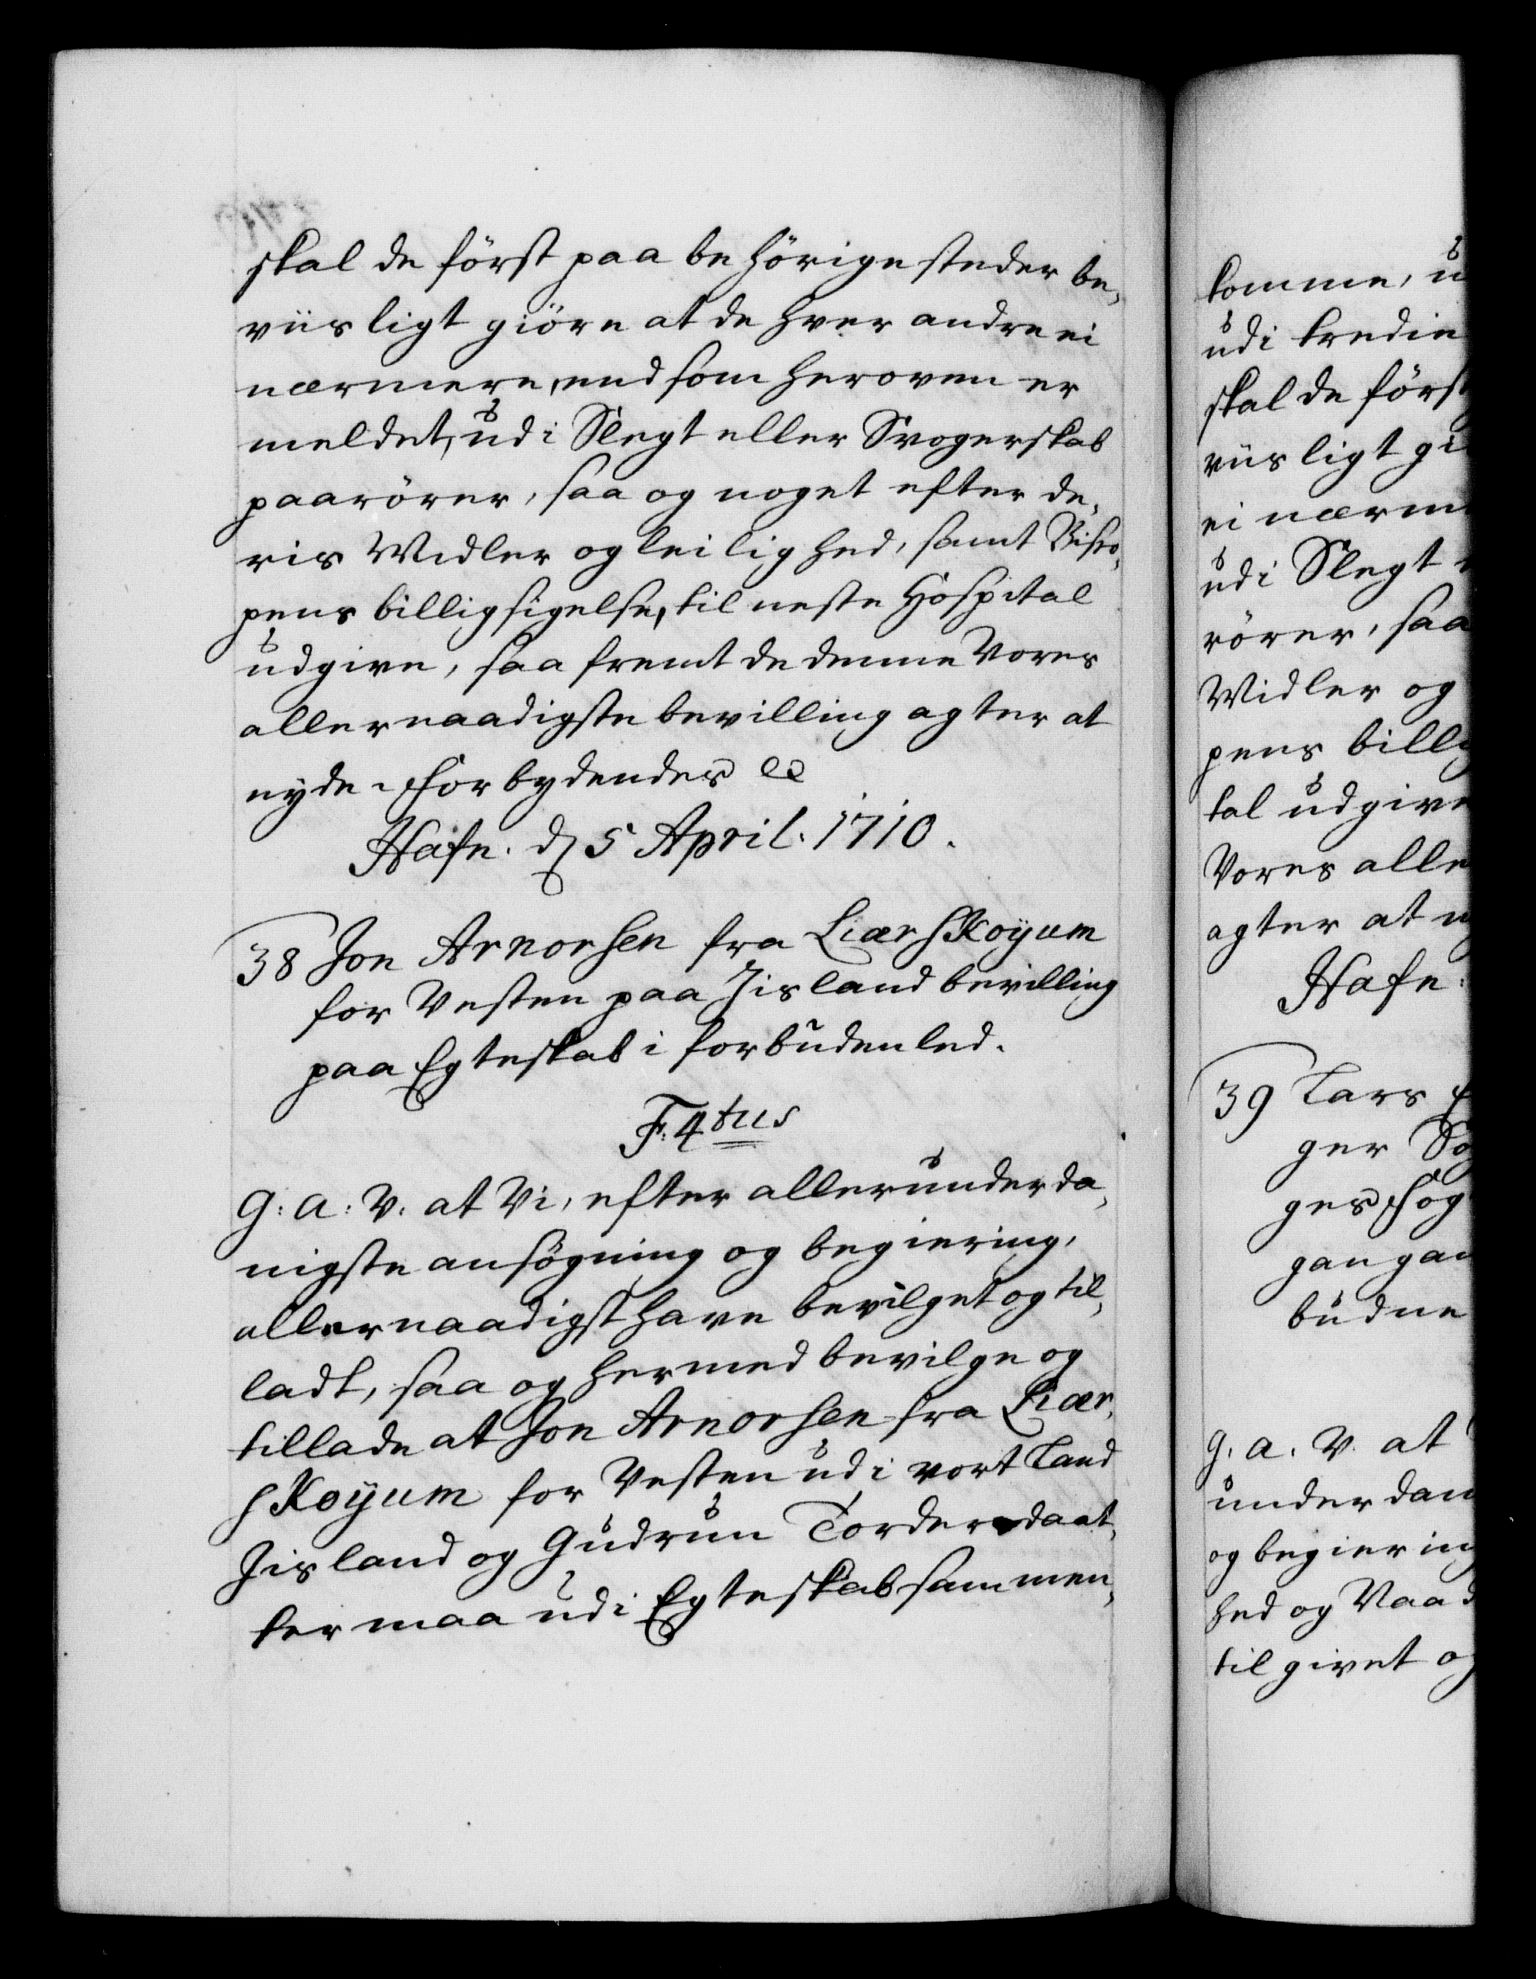 skal de först paa behörige steder be,
viisligt giöre at de hver andre ei
nærmere, end som heroven er
meldet, udi Slegt eller Svogerskab
paarörer, saa og noget efter de,
ris Midler og leilighed, samt Bisco,
pens billigsigelse, til neste Hospital
udgive, saa fremt de denne Vores
allernaadigste bevilling agter at
nyde. Forbydendes &c
Hafn. d 5 April. 1710.
38 Jon Arnorsen fra LiærsKoyum
for Vesten paa Jisland bevilling
paa Egteskab i forbuden led.
F: 4tus
G: A: V: at Vi, efter allerunderda,
nigste ansøgning og begiering,
allernaadigst have bevilget og til,
ladt, saa og hermed bevilge og
tillade at Jon Arnorsen fra Liær,
sKoyum for Vesten udi vort Land
Jisland og Gudrun Torders daat,
ter maa udi Egteskab sammen,
komme, u
udi tredie
skal de först
viisligt gi
ei nærm
udi Slegt
rörer, saa
Midler og
pens billig
tal udgive
Vores alle
agter at n
Hafn:
39 Lars
ger So
ges Fog
gangan
budne
G. A. V. at
underdan
og begiering
hed og Naad
tilgivet og